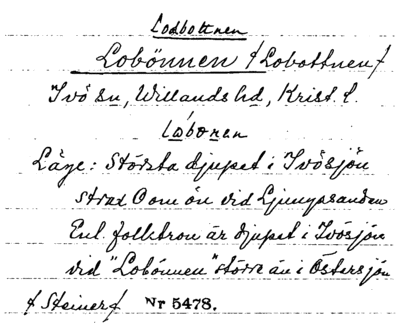 Lodbottnen
Lobönnen (Lobottnen)
Ivö sn, Willands hd, Krist. l.
Läge: Största djupet i Ivösjön
strax O om ön vid Ljungasanden
Enl. folktron är djupet i Ivösjön
vid "Lobönnen" större än i Östersjön
(Steiner) Nr 5478.